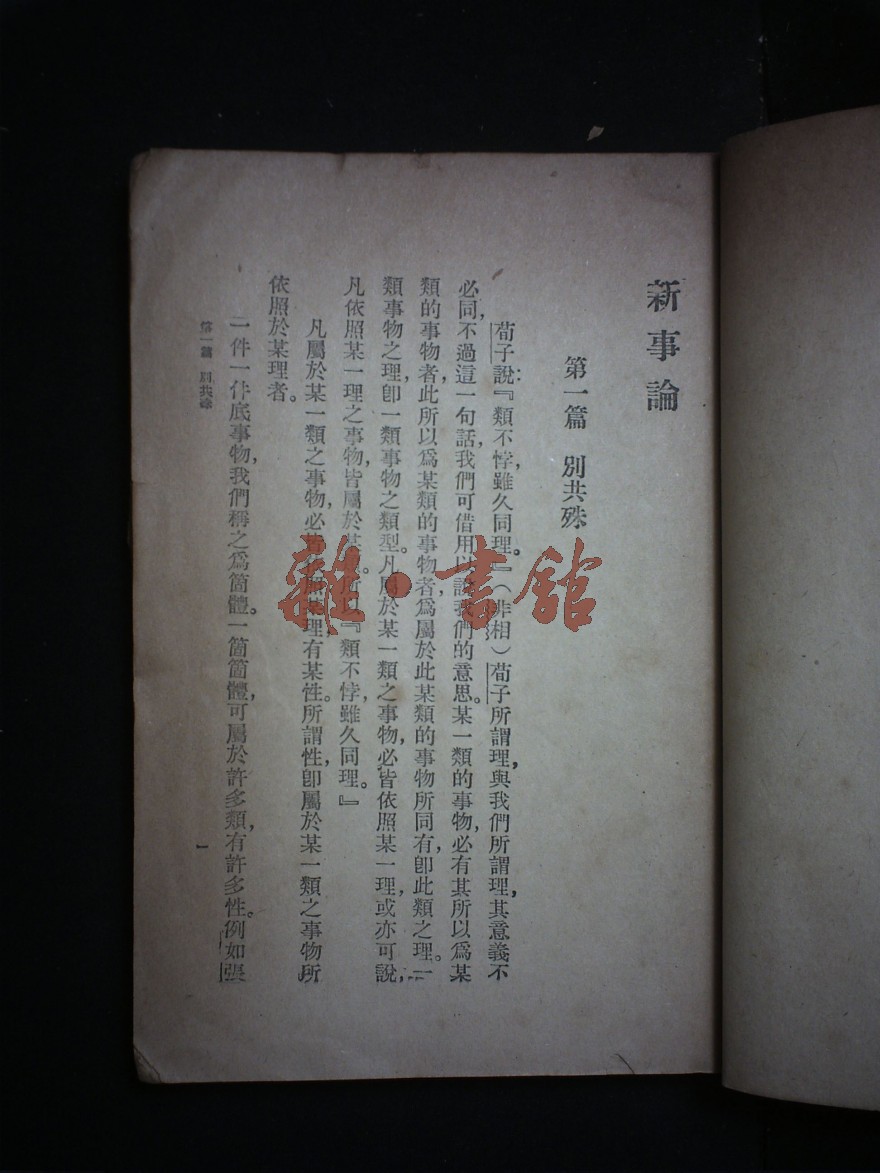 新事論
第一篇 別共殊
荀子說：『類不悖，雖久同理。』（非相）荀子所謂理，與我們所謂理，其意義不
必同，不過這一句話，我們可借用以說我們的意思。某一類的事物，必有其所以爲某
類的事物者，此所以爲某類的事物者，爲屬於此某類的事物所同有，卽此類之理。一
類事物之理，卽一類事物之類型。凡屬於某一類之事物，必皆依照某一理，或亦可說，
凡依照某一理之事物，皆屬於某類。所以『類不悖，雖久同理。』
凡屬於某一類之事物，必皆依照某理，有某性。所謂性，卽屬於某一類之事物所
依照於某理者。
一件一件底事物，我們稱之爲箇體。一箇箇體，可屬於許多類，有許多性。例如張
第一篇 別共殊
一
雜·書館